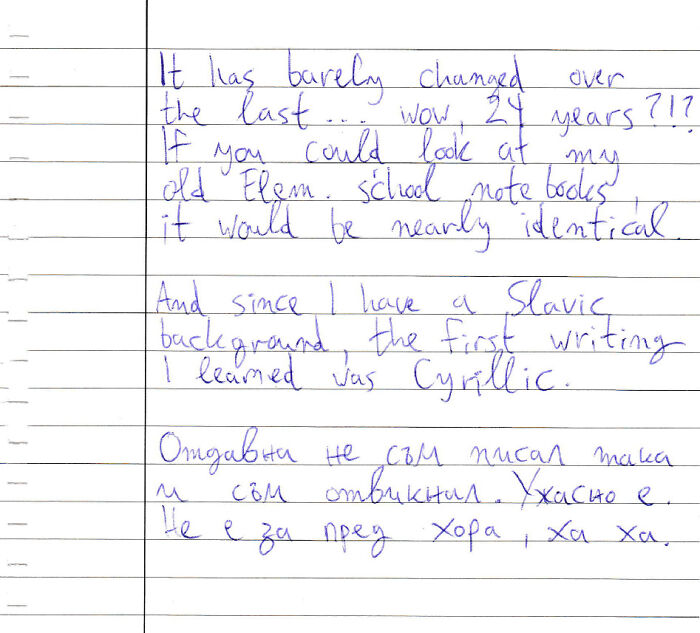 It has barely changed over
the last ... wow, 24 years?!?
If you could look at my
old Elem. school notebooks,
it would be nearly identical.
And since I have a Slavic
background, the first writing
I learned was Cyrillic.
Отдавна не съм писал така
и съм отвикнал. Ужасно е.
Не е за пред хора, ха ха.